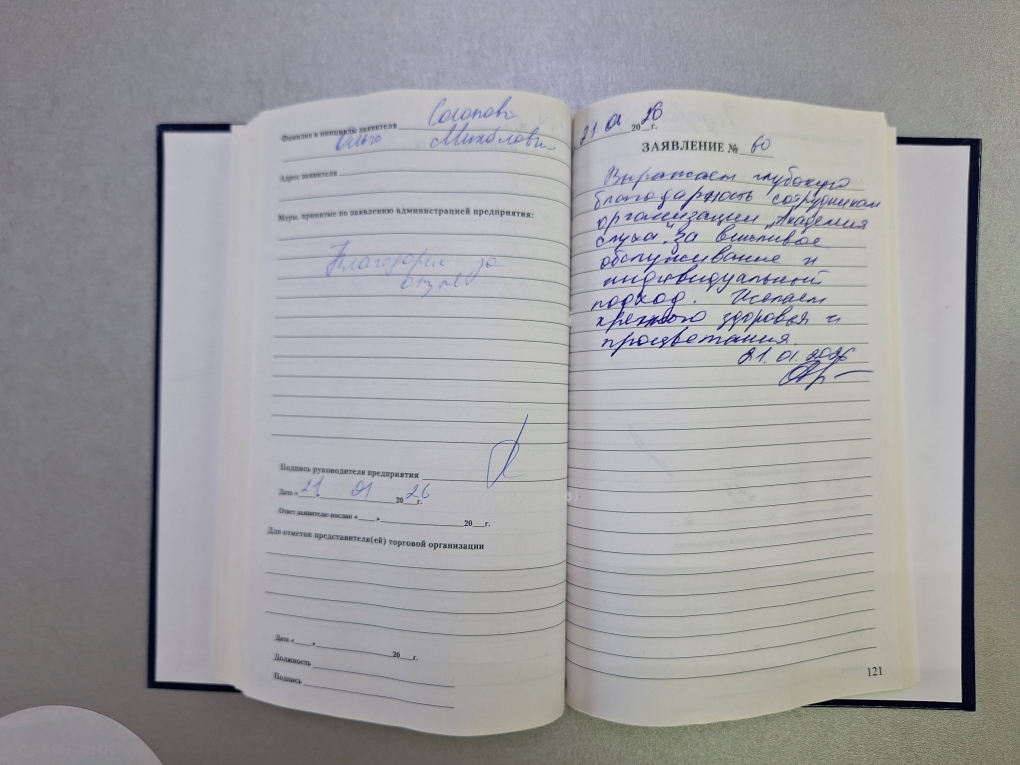 Фамилия и инициалы заявителя
Ольга
Адрес заявителя
Меры, принятые по заявлению администрацией предприятия:
Благодарим за
отзыв
Подпись руководителя предприятия
Дата «21 01 2026 г.
Ответ заявителю послан «___» ___ 20__г.
Для отметок представителя(ей) торговой организации
Дата «___» ___ 20__г.
Должность
Подпись
21.01.2026 г.
ЗАЯВЛЕНИЕ № 60
Выражаем глубокую
благодарность сотрудникам
организации "Академия
слуха" за вежливое
обслуживание и
индивидуальный
подход. Желаем
крепкого здоровья и
процветания.
21.01.2026
121